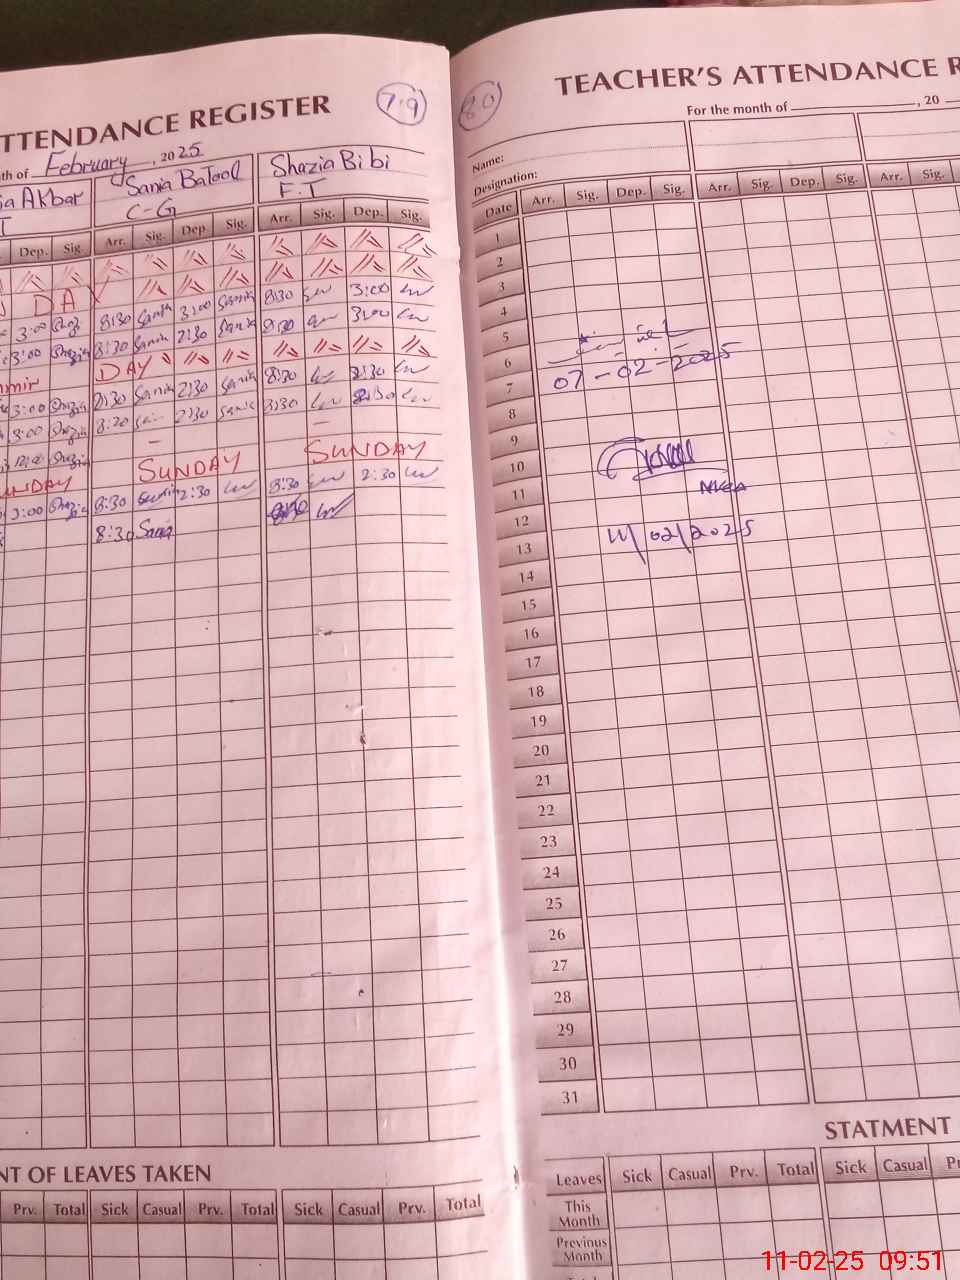 TTENDANCE REGISTER
79
th of February, 2025
ia Akbar
Sania Batool
Shazia Bibi
T
C-G
F.T
Dep. Sig. Arr. Sig. Dep. Sig. Arr. Sig. Dep. Sig.
DAY
3:00 8:30 Sania 3:00 Sania 8:30 3:00
3:00 Shazia 8:30 Sania 2:30 Sania 8:30 3:00
DAY
3:00 Shazia 8:30 Sania 2:30 Sania 8:30 2:30
3:00 Shazia 8:20 2:30 Sania 8:30 2:30
12:00 Shazia
UNDAY SUNDAY SUNDAY
3:00 Shazia 8:30 2:30 8:30 2:30
8:30 Sania
NT OF LEAVES TAKEN
Prv. Total Sick Casual Prv. Total Sick Casual Prv. Total
80
TEACHER'S ATTENDANCE R
For the month of , 20
Name:
Designation:
Date Arr. Sig. Dep. Sig. Arr. Sig. Dep. Sig. Arr. Sig.
1
2
3
4
5
6
07-02-2025
7
8
9
10
11
12
11/02/2025
13
14
15
16
17
18
19
20
21
22
23
24
25
26
27
28
29
30
31
STATMENT
Leaves Sick Casual Prv. Total Sick Casual
This Month
Previous Month
11-02-25 09:51